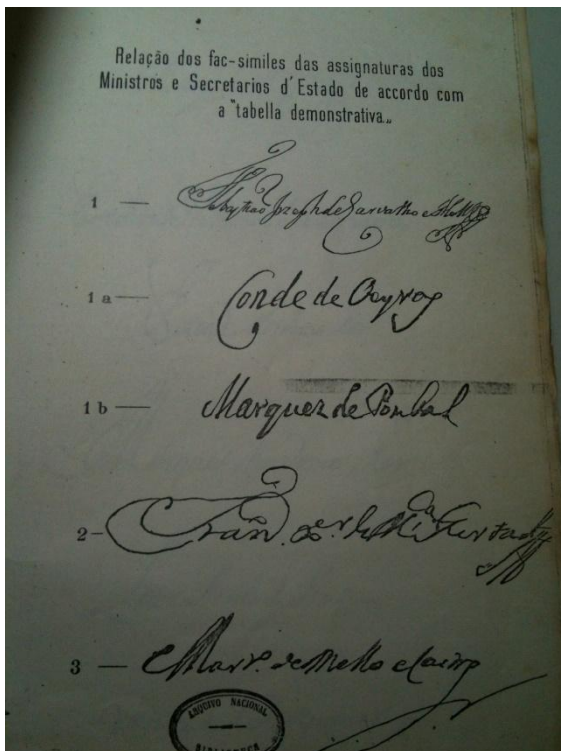 Relação dos fac-similes das assignaturas dos
Ministros e Secretarios d'Estado de accordo com
a "tabella demonstrativa„
1 — Sebastiao Jozeph de Carvalho e Mello
1 a — Conde de Oeyras
1 b — Marquez de Pombal
2 — Fran.co X.er de M.ça Furtado
3 — Mart.o de Mello e Castro
ARQUIVO NACIONAL
BIBLIOTECA